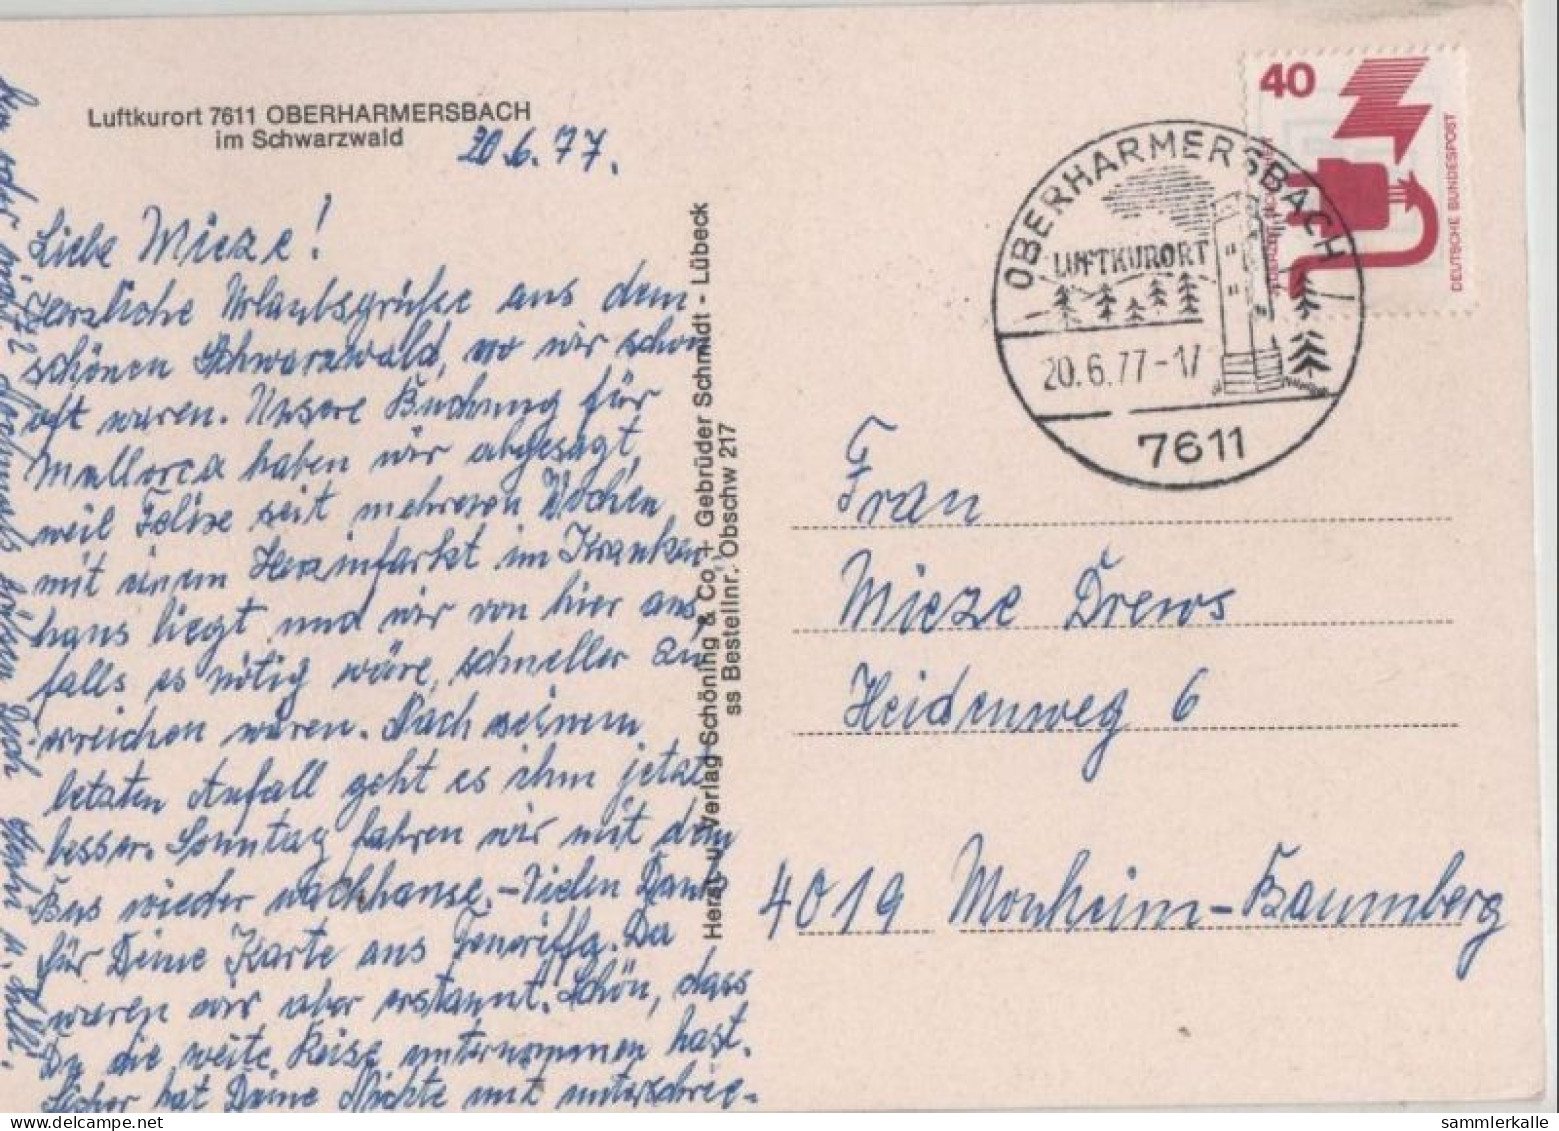 Luftkurort 7611 OBERHARMERSBACH
im Schwarzwald
20.6.77.
Liebe Mieze!
Herzliche Urlaubsgrüße aus dem
schönen Schwarzwald, wo wir schon
oft waren. Unsere Buchung für
Mallorca haben wir abgesagt,
weil Felixe seit mehreren Wochen
mit einem Herzinfarkt im Kranken
haus liegt und wir von hier aus,
falls es nötig wäre, schneller zu
erreichen wären. Nach seinem
letzten Anfall geht es ihm jetzt
besser. Sonntag fahren wir mit dem
Bus wieder nachhause. – Vielen Dank
für Deine Karte aus Teneriffa. Da
waren wir aber erstaunt. Schön, dass
Du die weite Reise unternommen hast.
Sicher hat Deine Nichte mit unterschrie-
ben oder nicht?
Nochmals grüßen Dich
Herst. u. Verlag Schöning & Co + Gebrüder Schmidt - Lübeck
ss Bestellnr. Obschw 217
40
DEUTSCHE BUNDESPOST
OBERHARMERSBACH
LUFTKURORT
20.6.77-17
7611
Frau
Mieze Drews
Heidenweg 6
4019 Monheim-Baumberg
sammlerkalle